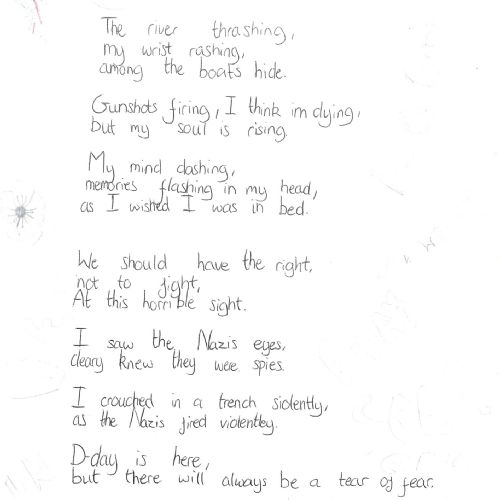 The river thrashing,
my wrist rashing,
among the boats hide.
Gunshots firing, I think im dying,
but my soul is rising.
My mind dashing,
memories flashing in my head,
as I wished I was in bed.
We should have the right,
not to fight,
At this horrible sight.
I saw the Nazis eyes,
cleary knew they wee spies.
I crouched in a trench siolently,
as the Nazis fired violentley.
D-day is here,
but there will always be a tear of fear.